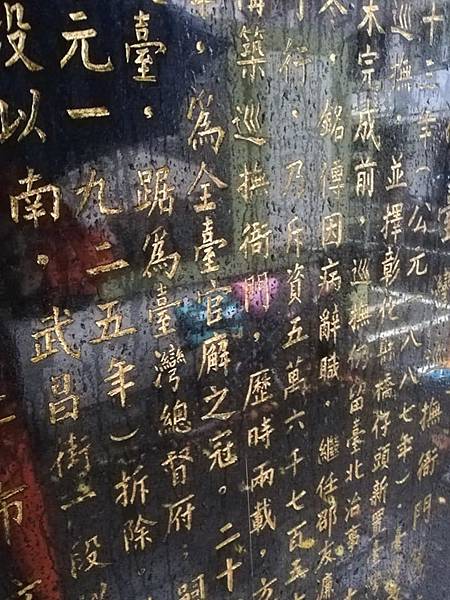 撫衙門
十三年（公元一八八七年）
巡撫，並擇彰化縣橋仔頭新置
未完成前，巡撫仍留臺北治事
冬，銘傳因病辭職．繼任邵友濂
行，乃斥資五萬六千七百五
構築巡撫衙門，歷時兩載，方
，為全臺官廨之冠。二十
臺，踞為臺灣總督府；嗣
元一九二五年）拆除。
段以南．武昌街一段以
市